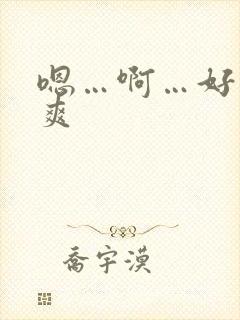 嗯…啊…好
爽
乔宇漠